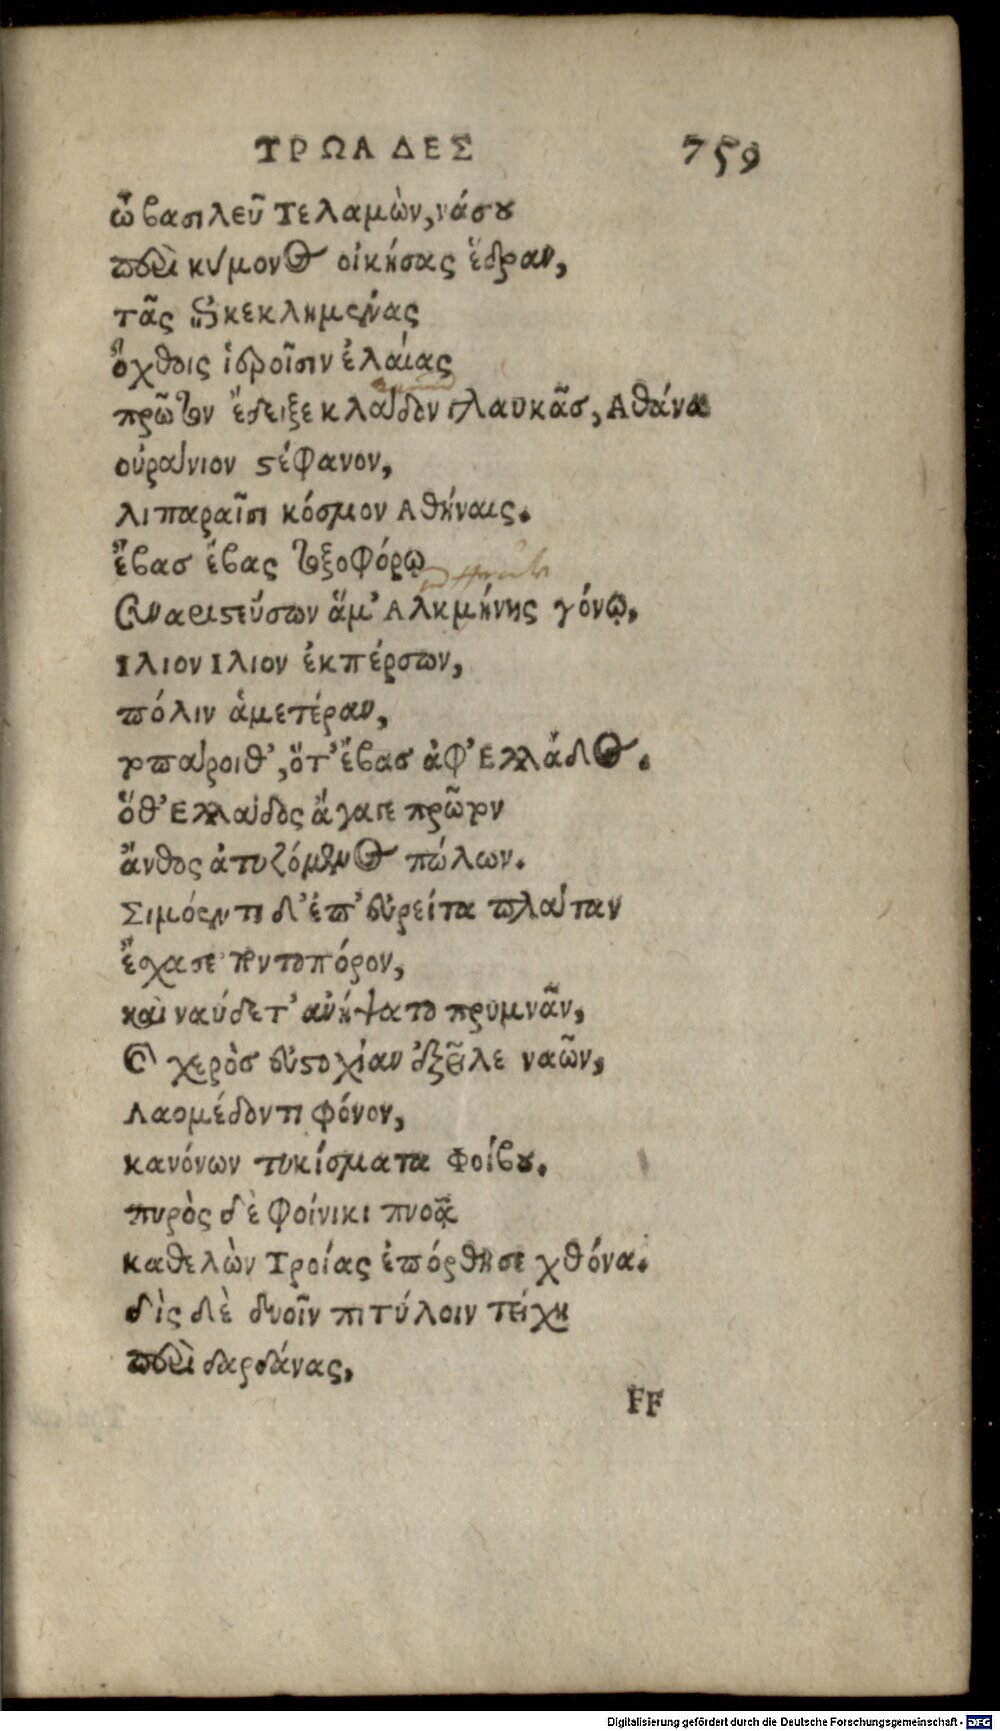 ΤΡΩΑΔΕΣ 759
ὦ βασιλεῦ Τελαμὼν, νάσου
περικύμονος οἰκήσας ἕδραν,
τᾶς ἐπικεκλημένας
ὄχθοις ἱδροῖσιν ἐλαίας
πρῶτον ἔδειξε κλάδον γλαυκᾶσ, Αθάνα
οὐράνιον στέφανον,
λιπαραῖσι κόσμον Αθήναις.
ἔβασ ἔβας τοξοφόρῳ
συναριστεύσων ἅμ' Αλκμήνης γόνῳ,
Ιλιον Ιλιον ἐκπέρσων,
πόλιν ἁμετέραν,
τοπάροιθ', ὅτ' ἔβασ ἀφ' Ελλάδος.
ὅθ' Ελλάδος ἄγαγε πρῶτον
ἄνθος ἀτυζόμενος πώλων.
Σιμόεντι δ' ἐπ' εὐρείτα πλάταν
ἔσχασε ποντοπόρον,
καὶ ναύδετ' ἀνήψατο πρυμνᾶν,
καὶ χερὸσ εὐστοχίαν ἐξεῖλε ναῶν,
Λαομέδοντι φόνον,
κανόνων τυκίσματα Φοίβου.
πυρὸς δὲ φοίνικι πνοᾷ
καθελὼν Τροίας ἐπόρθησε χθόνα.
δὶς δὲ δυοῖν πιτύλοιν τείχη
περὶ δαρδάνας,
FF
Digitalisierung gefördert durch die Deutsche Forschungsgemeinschaft - DFG